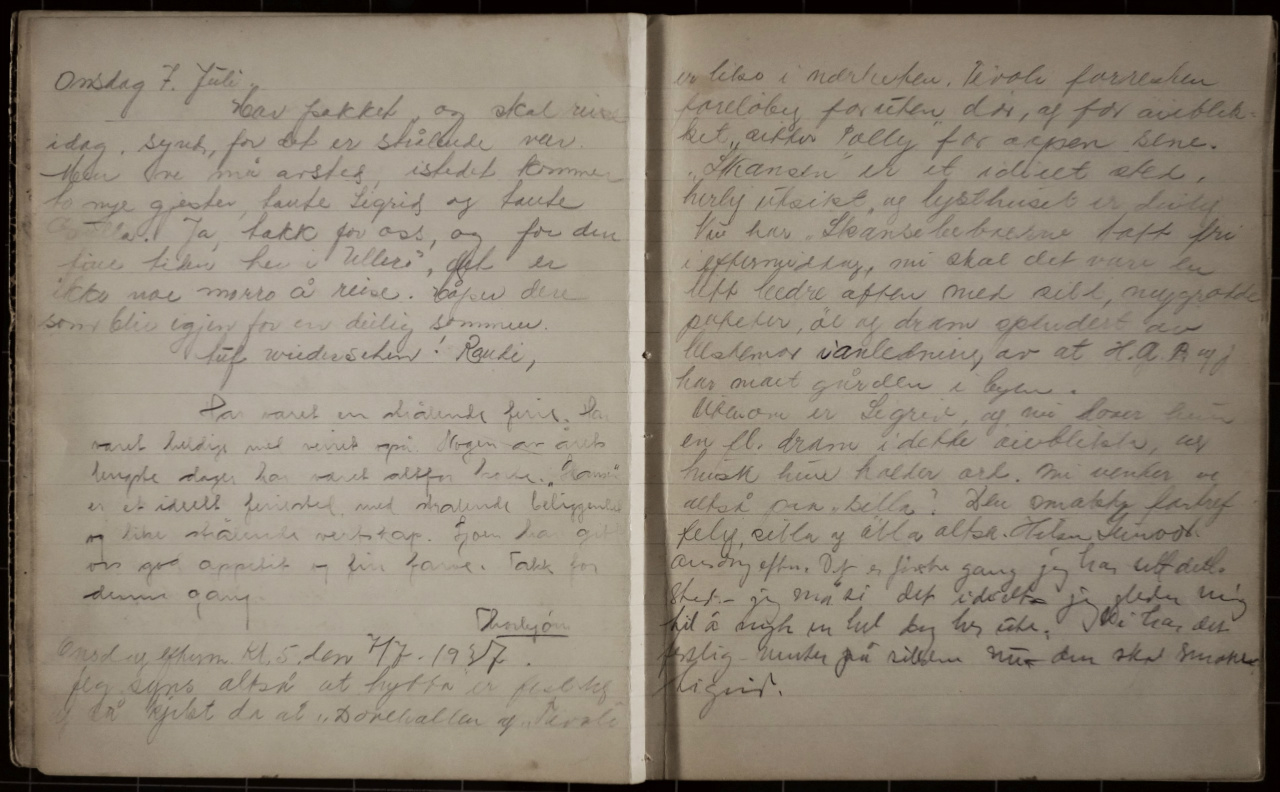 Onsdag 7. Juli.
Har pakket, og skal reise
idag. Synd, for det er strålende vær.
Men vi må avsted, istedet kommer
to nye gjester, tante Sigrid og tante
Ja, takk for oss, og for den
fine tiden her i det er
ikke noe morro å reise. Håper den
som blir igjen får en deilig sommer.
Auf wiedersehen! Randi,
Har været en strålende ferie. Har
været heldig med veiret også. Noen av årets
lengste dager har været altfor korte.
er et ideelt feriested med strålende beliggenhet
og like strålende vertskap. Sjøen har gitt
oss god appetit og fin farve. Takk for
denne gang.
Thorbjørn
Onsdag efterm. kl. 5. den 7/7. 1937.
Jeg synes altså at hytta er
og så kjekt da at „Dovrehallen og „Tivoli
er like i nærheten. Tivoli forresten
foreløbig foruten dør, og for øieblik-
ket „ for åpen scene.
„Skansen" er et idielt sted,
herlig utsikt, og lysthuset er deilig
Nu har Skansebeboerne tatt fri
i eftermiddag, vi skal det være en
litt bedre aften med sild, nygrodde
poteter, øl og dram spandert av
bestemor i anledning av at H.A.B. og j
har malt gården i byen.
er Sigrid, og vi lover hun
en fl. dram i dette øieblikk, og
husk hun holder ord. Vi venter
altså på silla! Den smakte fortref
felig, silla og ølla altså. Hilsen
Onsdag eftm. Det er første gang jeg har sett dette
sted – jeg må si det idielt – jeg gleder mig
til å nyte en hel dag her ute. Vi har det
festlig – venter på silden nu – den skal smake
Sigrid.